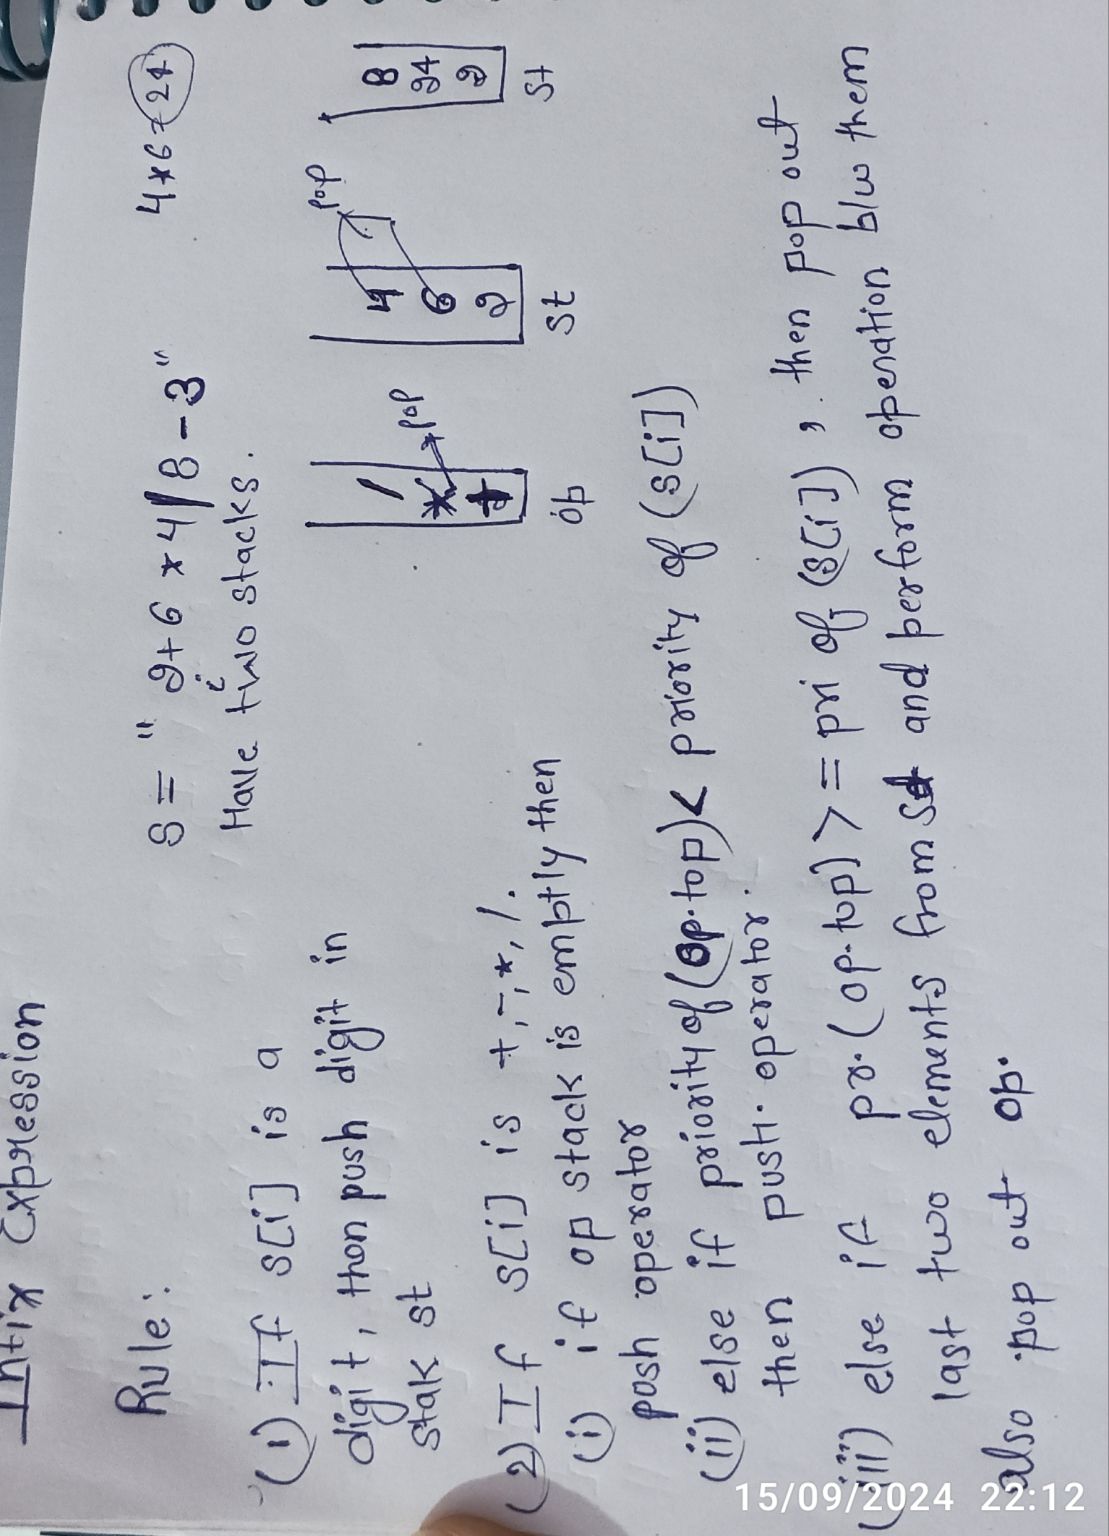 Infix Expression
Rule:
(1) If s[i] is a
digit, then push digit in
stak st
s = " 2+6*4/8-3"
Have two stacks.
4*6=24
/
*
+
pop
op
4
6
2
pop
st
8
24
2
st
(2) If s[i] is +,-,*,/.
(i) if op stack is emptly then
posh operator
(ii) else if priority of (op.top) < priority of (s[i])
then push operator.
(iii) else if pr.(op.top) >= pri of (s[i]), then pop out
last two elements from st and perform operation b/w them
also pop out op.
15/09/2024 22:12